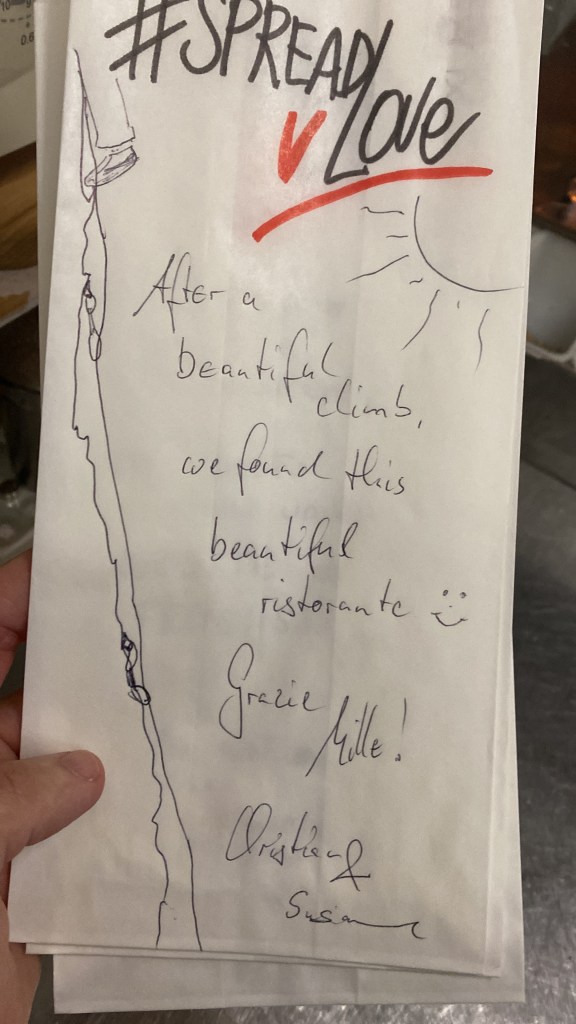 #SPREAD
Love
After a
beautiful
climb,
we found this
beautiful
ristorante
Grazie
Mille!
Christian &